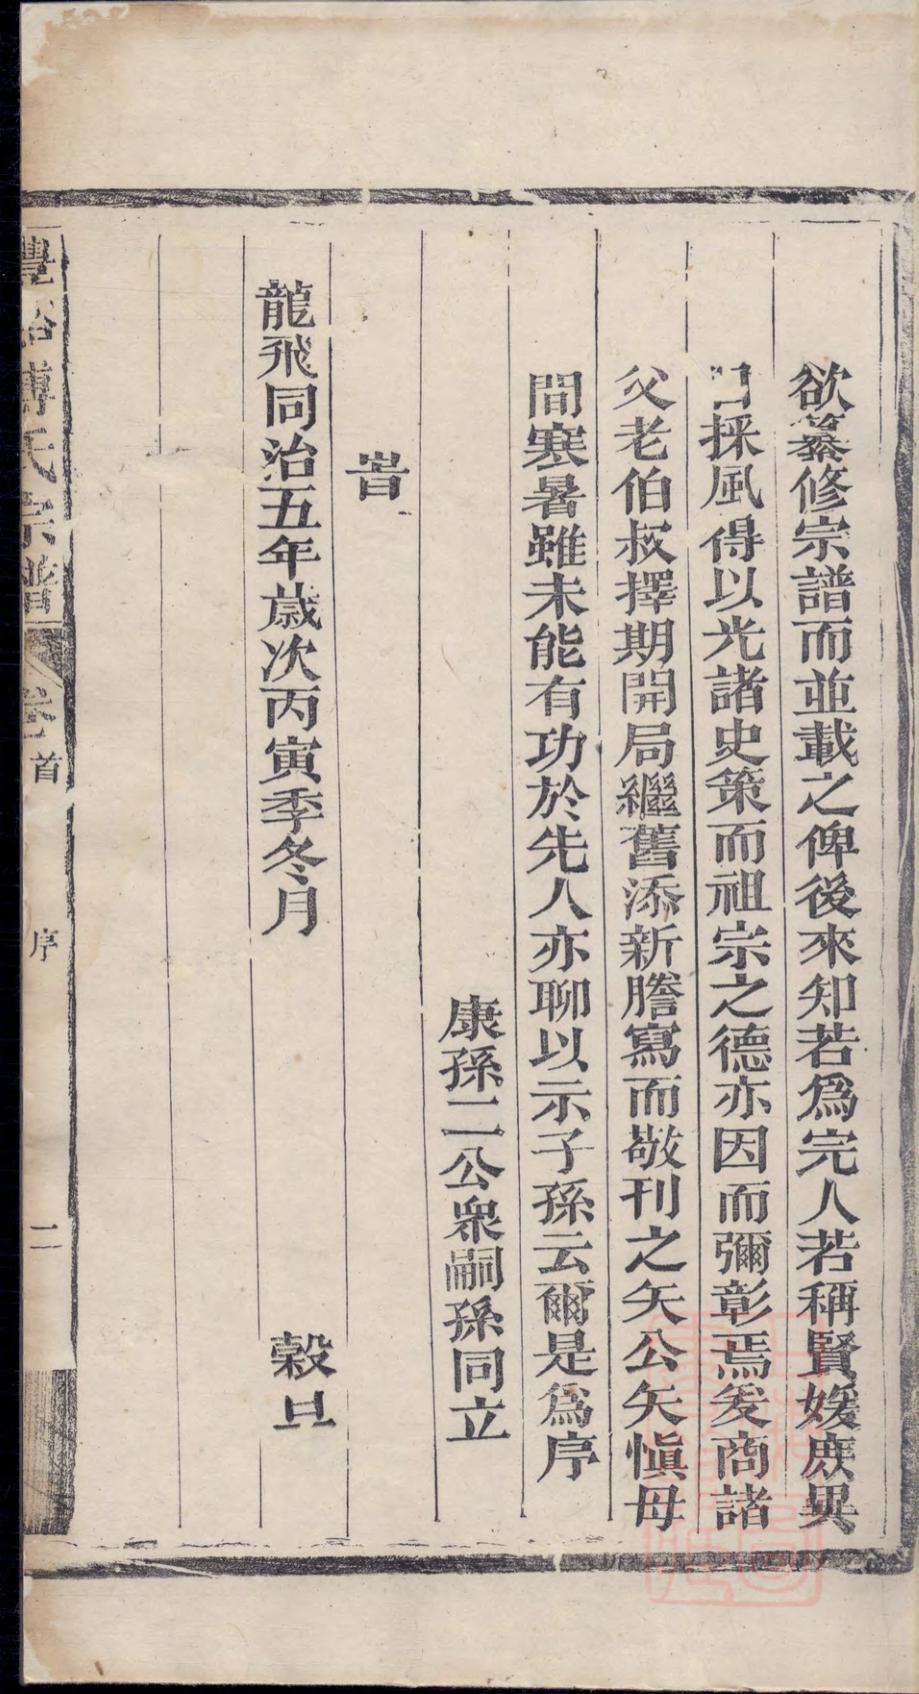 欲纂修宗譜而並載之俾後來知若爲完人若稱賢媛庶異
日採風得以光諸史策而祖宗之德亦因而彌彰焉爰商諸
父老伯叔擇期開局繼舊添新謄寫而敬刊之矢公矢愼毋
間寒暑雖未能有功於先人亦聊以示子孫云爾是爲序
康孫二公衆嗣孫同立
旹
龍飛同治五年歲次丙寅季冬月 穀旦
傅氏宗譜 卷首 序 二